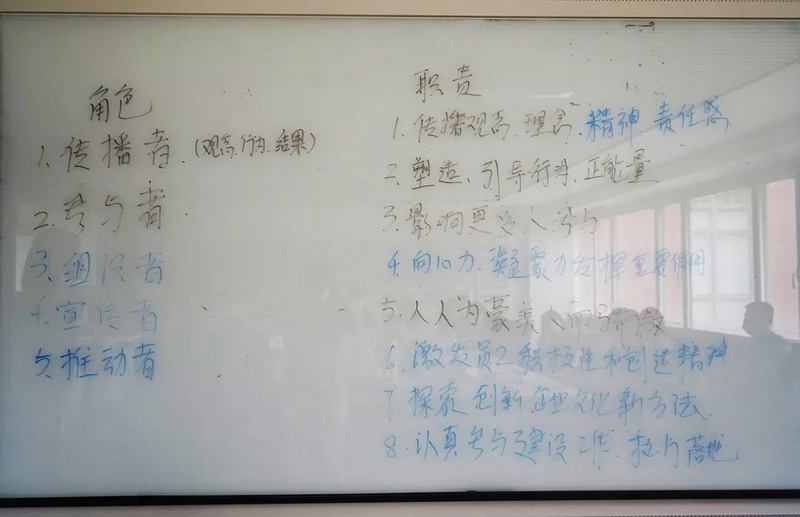 角色
1.传播者.(观念.行为.结果)
2.参与者
3.组织者
4.宣传者
5.推动者
职责
1.传播观念.理念.精神.责任感
2.塑造、引导行为.正能量
3.影响更多人参与
4.向心力、凝聚力发挥重要作用
5.人人为豪美人而骄傲
6.激发员工积极性和创造精神
7.探索创新企业文化新方法.
8.认真参与建设工作.落地